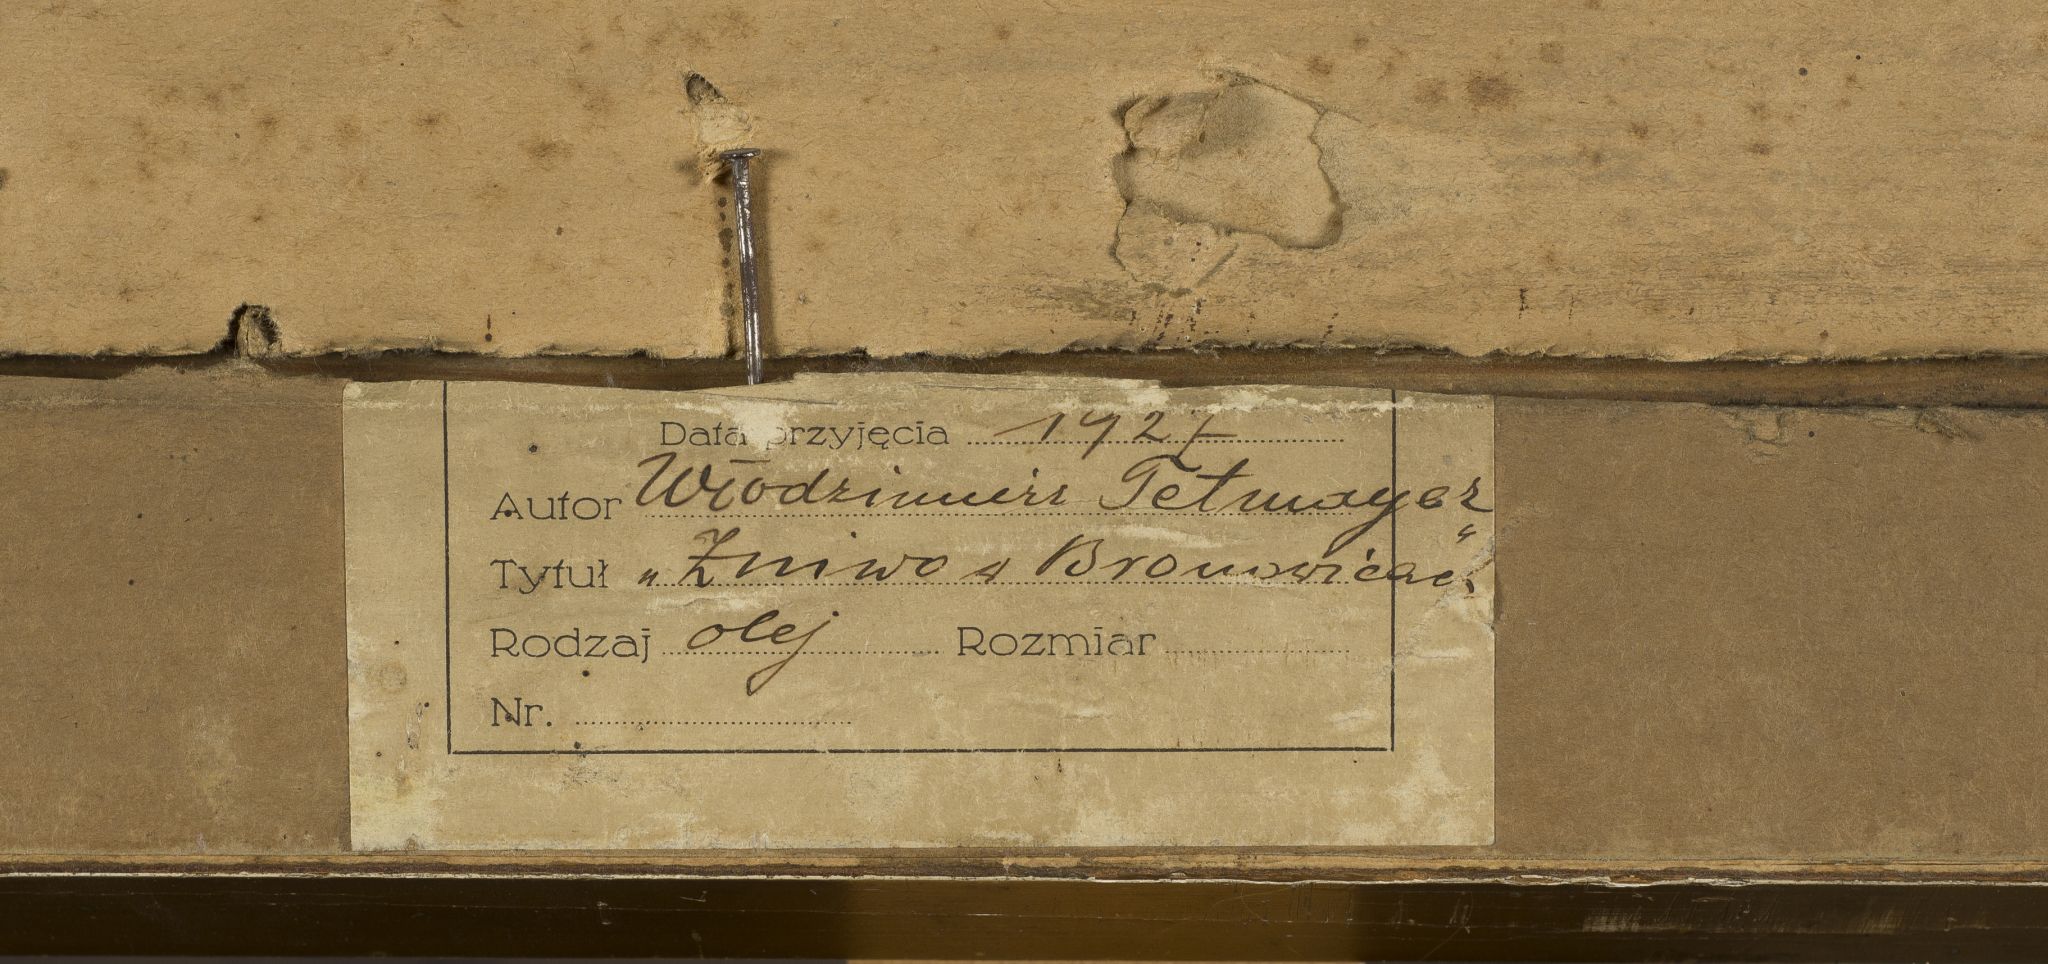 Data przyjęcia 1927
Autor Włodzimierz Tetmayer
Tytuł „Żniwo w Bronowicac"
Rodzaj olej Rozmiar
Nr.